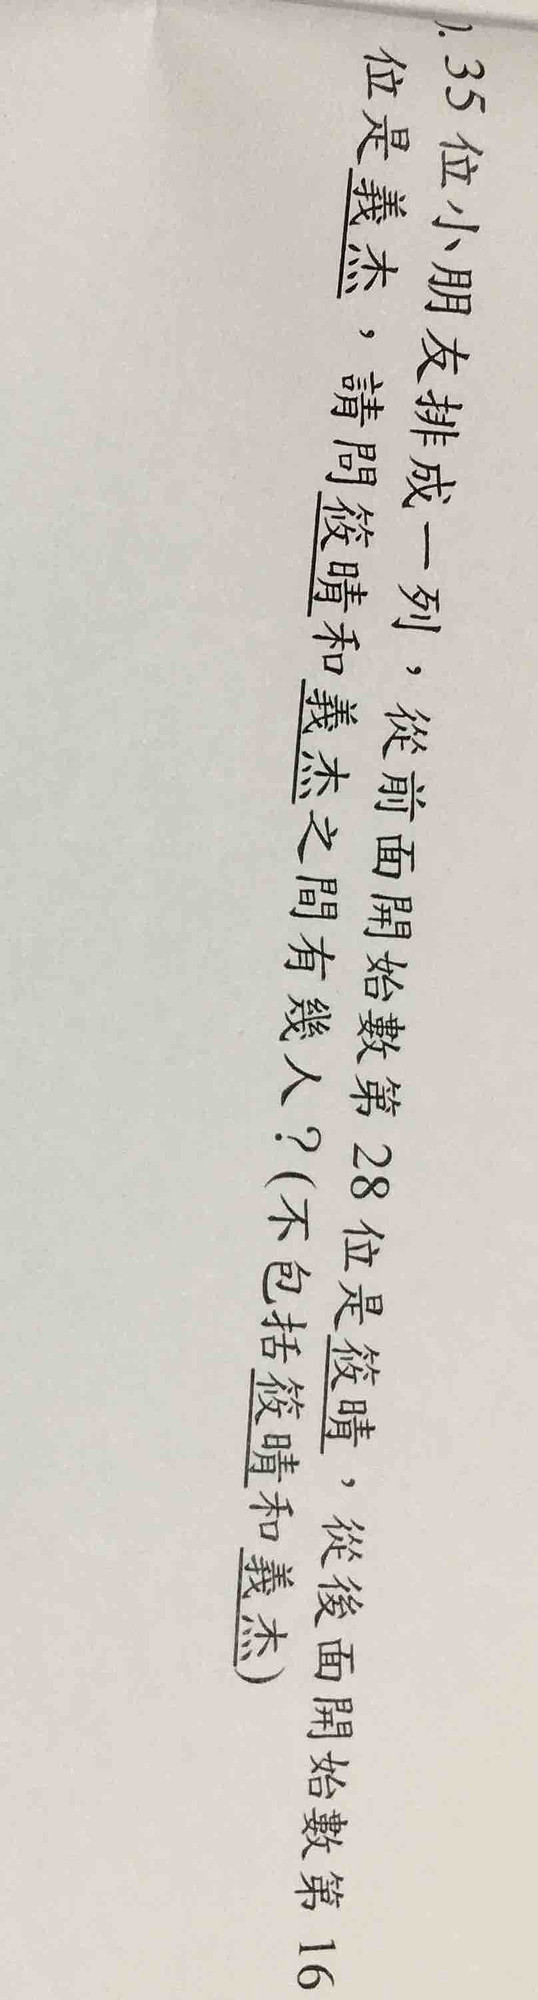 ). 35 位小朋友排成一列，從前面開始數第 28 位是筱晴，從後面開始數第 16
位是義杰，請問筱晴和義杰之間有幾人？(不包括筱晴和義杰)